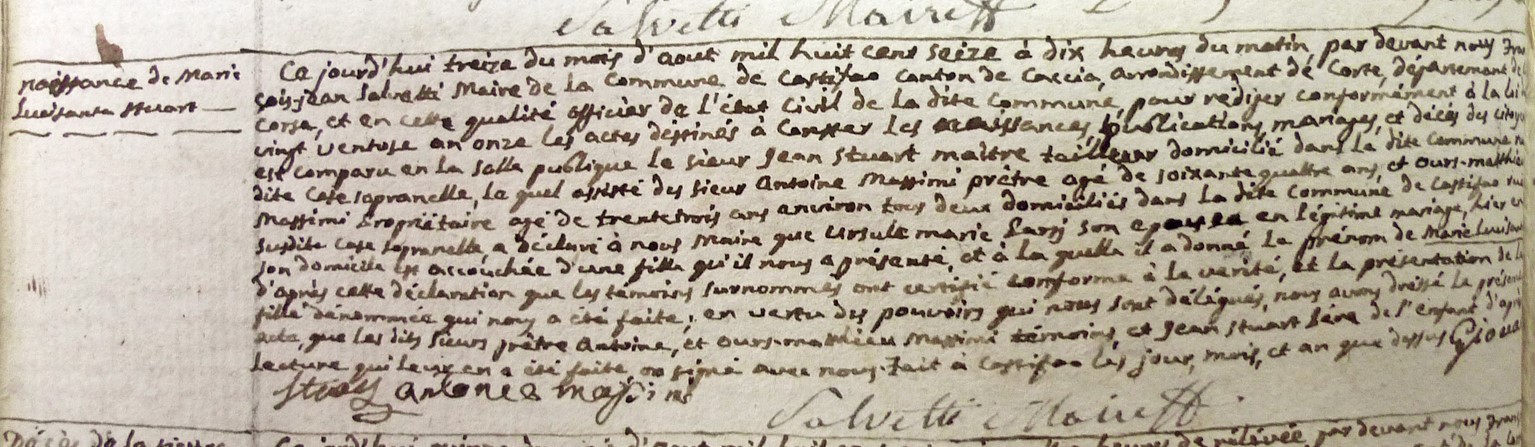 Salvetti Maire
naissance de Marie
Luisanta Stuart
Ce jourd'hui treize du mois d'aout mil huit cent seize à dix heures du matin par devant nous fran
çois-jean Salvetti Maire de la Commune de Castifao Canton de Caccia, arrondissement de Corte, département de
Corse, et en cette qualité officier de l'état Civil de la dite Commune, pour rediger conformément à la loi
vingt ventose an onze les actes destinés à Constter les naissances, publications, mariages, et décés des citoy
est comparu en la salle publique le sieur Jean Stuart maitre tailleur domicilié dans la dite Commune
dite Case sopranelle, le quel assisté des sieur Antoine Massimi prêtre agé de soixante quattre ans, et Ours-matthie
Massimi Propriétaire agé de trentetrois ans anviron tous deux domiciliés dans la dite Commune de Castifao rue
susdite Case sopranelle, a déclaré à nous Maire que Ursule marie son epouse en légitime mariage, hier en
son domicile est accouchée d'une fille qu'il nous a présenté, et à la quelle il a donné le prénom de Marie Luisan
d'après cette déclaration que les témoins surnommés ont certifié conforme à la verité, et la présentation de la
fille dénommée qui nous a été faite; en vertu des pouvoirs qui nous sont délégués, nous avons dréssé le présent
acte, que les dits sieurs prêtre Antoine, et Ours-mathieu Massimi témoins, et Jean Stuart Père de l'enfant d'apr
lecture qui leur en a été faite, on signé avec nous. Fait à Castifao les jour, mois, et an que dessus Giova
Antonio Massimi
Salvetti Maire